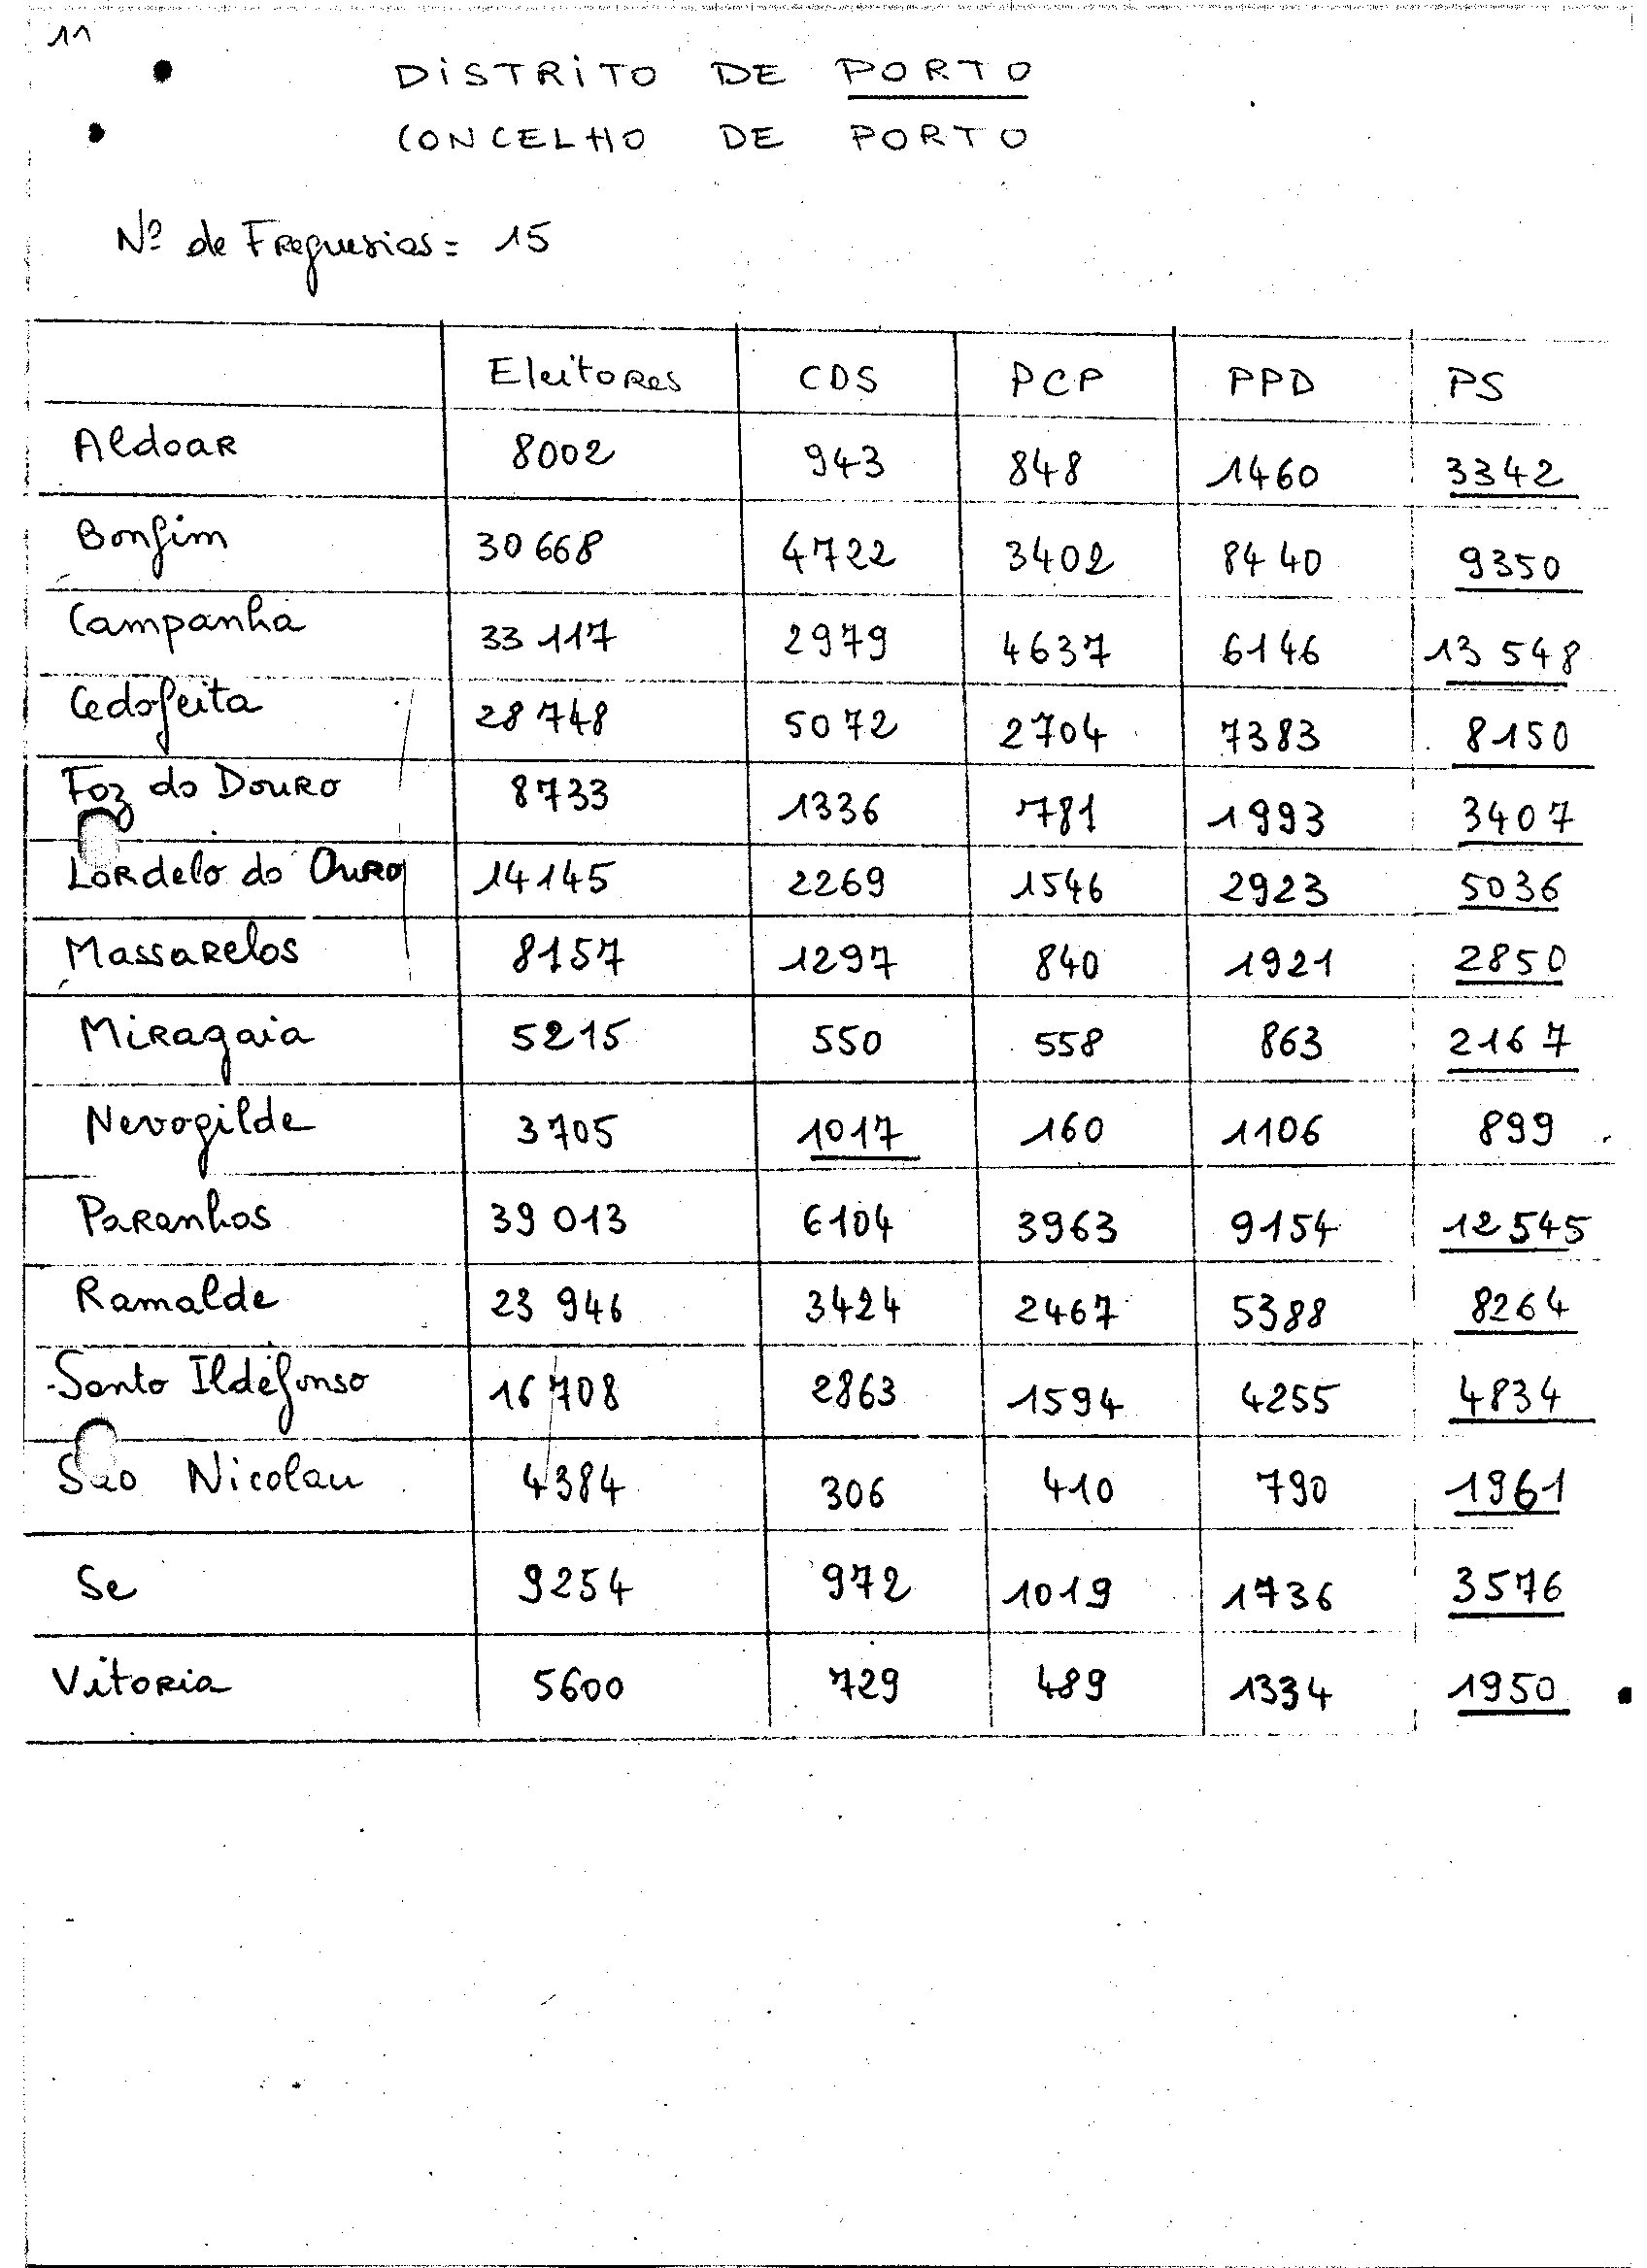 11
DiSTRiTO DE PORTO
CONCELHO DE PORTO
Nº de Freguesias = 15
Eleitores CDS PCP PPD PS
Aldoar 8002 943 848 1460 3342
Bonfim 30 668 4722 3402 8440 9350
Campanha 33 117 2979 4637 6146 13 548
Cedofeita 28 748 5072 2704 7383 8150
Foz do Douro 8733 1336 781 1993 3407
Lordelo do Ouro 14145 2269 1546 2923 5036
Massarelos 8157 1297 840 1921 2850
Miragaia 5215 550 558 863 2167
Nevogilde 3705 1017 160 1106 899
Paranhos 39 013 6104 3963 9154 12 545
Ramalde 23 946 3424 2467 5388 8264
Santo Ildefonso 16 708 2863 1594 4255 4834
Sao Nicolau 4384 306 410 790 1961
Se 9254 972 1019 1736 3576
Vitoria 5600 729 489 1334 1950